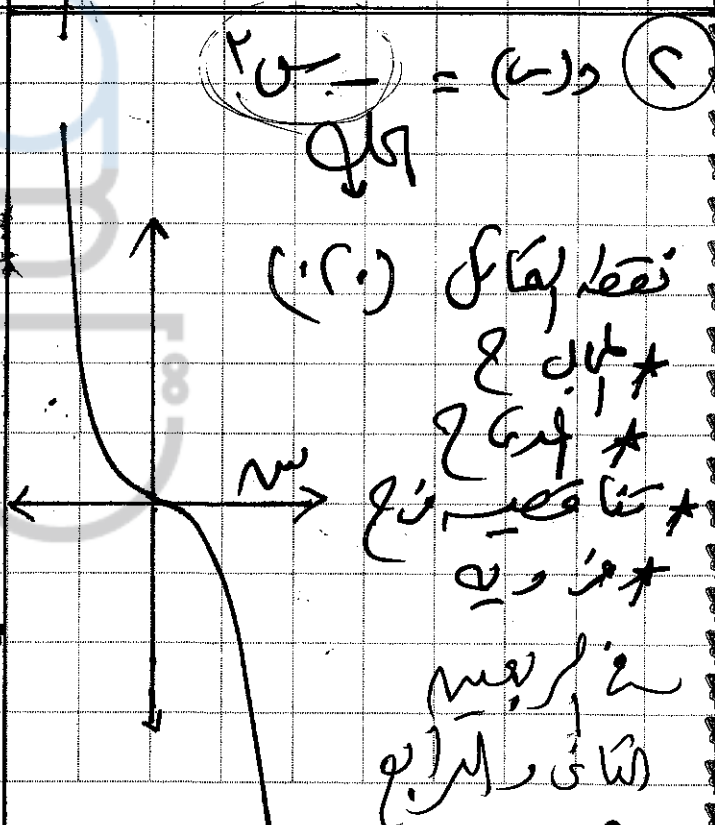 ② د(س) = -س٣
الحل
نقطة التماثل (٠،٠)
* المجال ح
* المدى ح
* تناقصية في ح
* فردية
في الربعين
الثاني والرابع
س